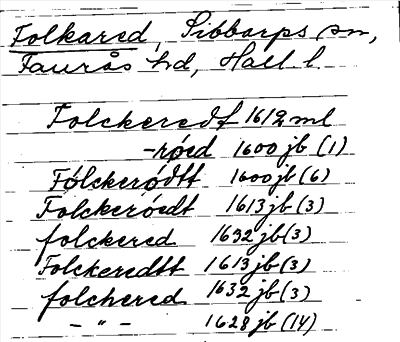 Folkared, Sibbarps sn,
Faurås hd, Hall. l.
Folckeredt 1612 ml
-røed 1600 jb (1)
Fólckerødtt 1600 jb (6)
Folckeröedt 1613 jb (3)
folckered 1632 jb (3)
Folckeredtt 1613 jb (3)
folchered 1632 jb (3)
- " - 1628 jb (14)